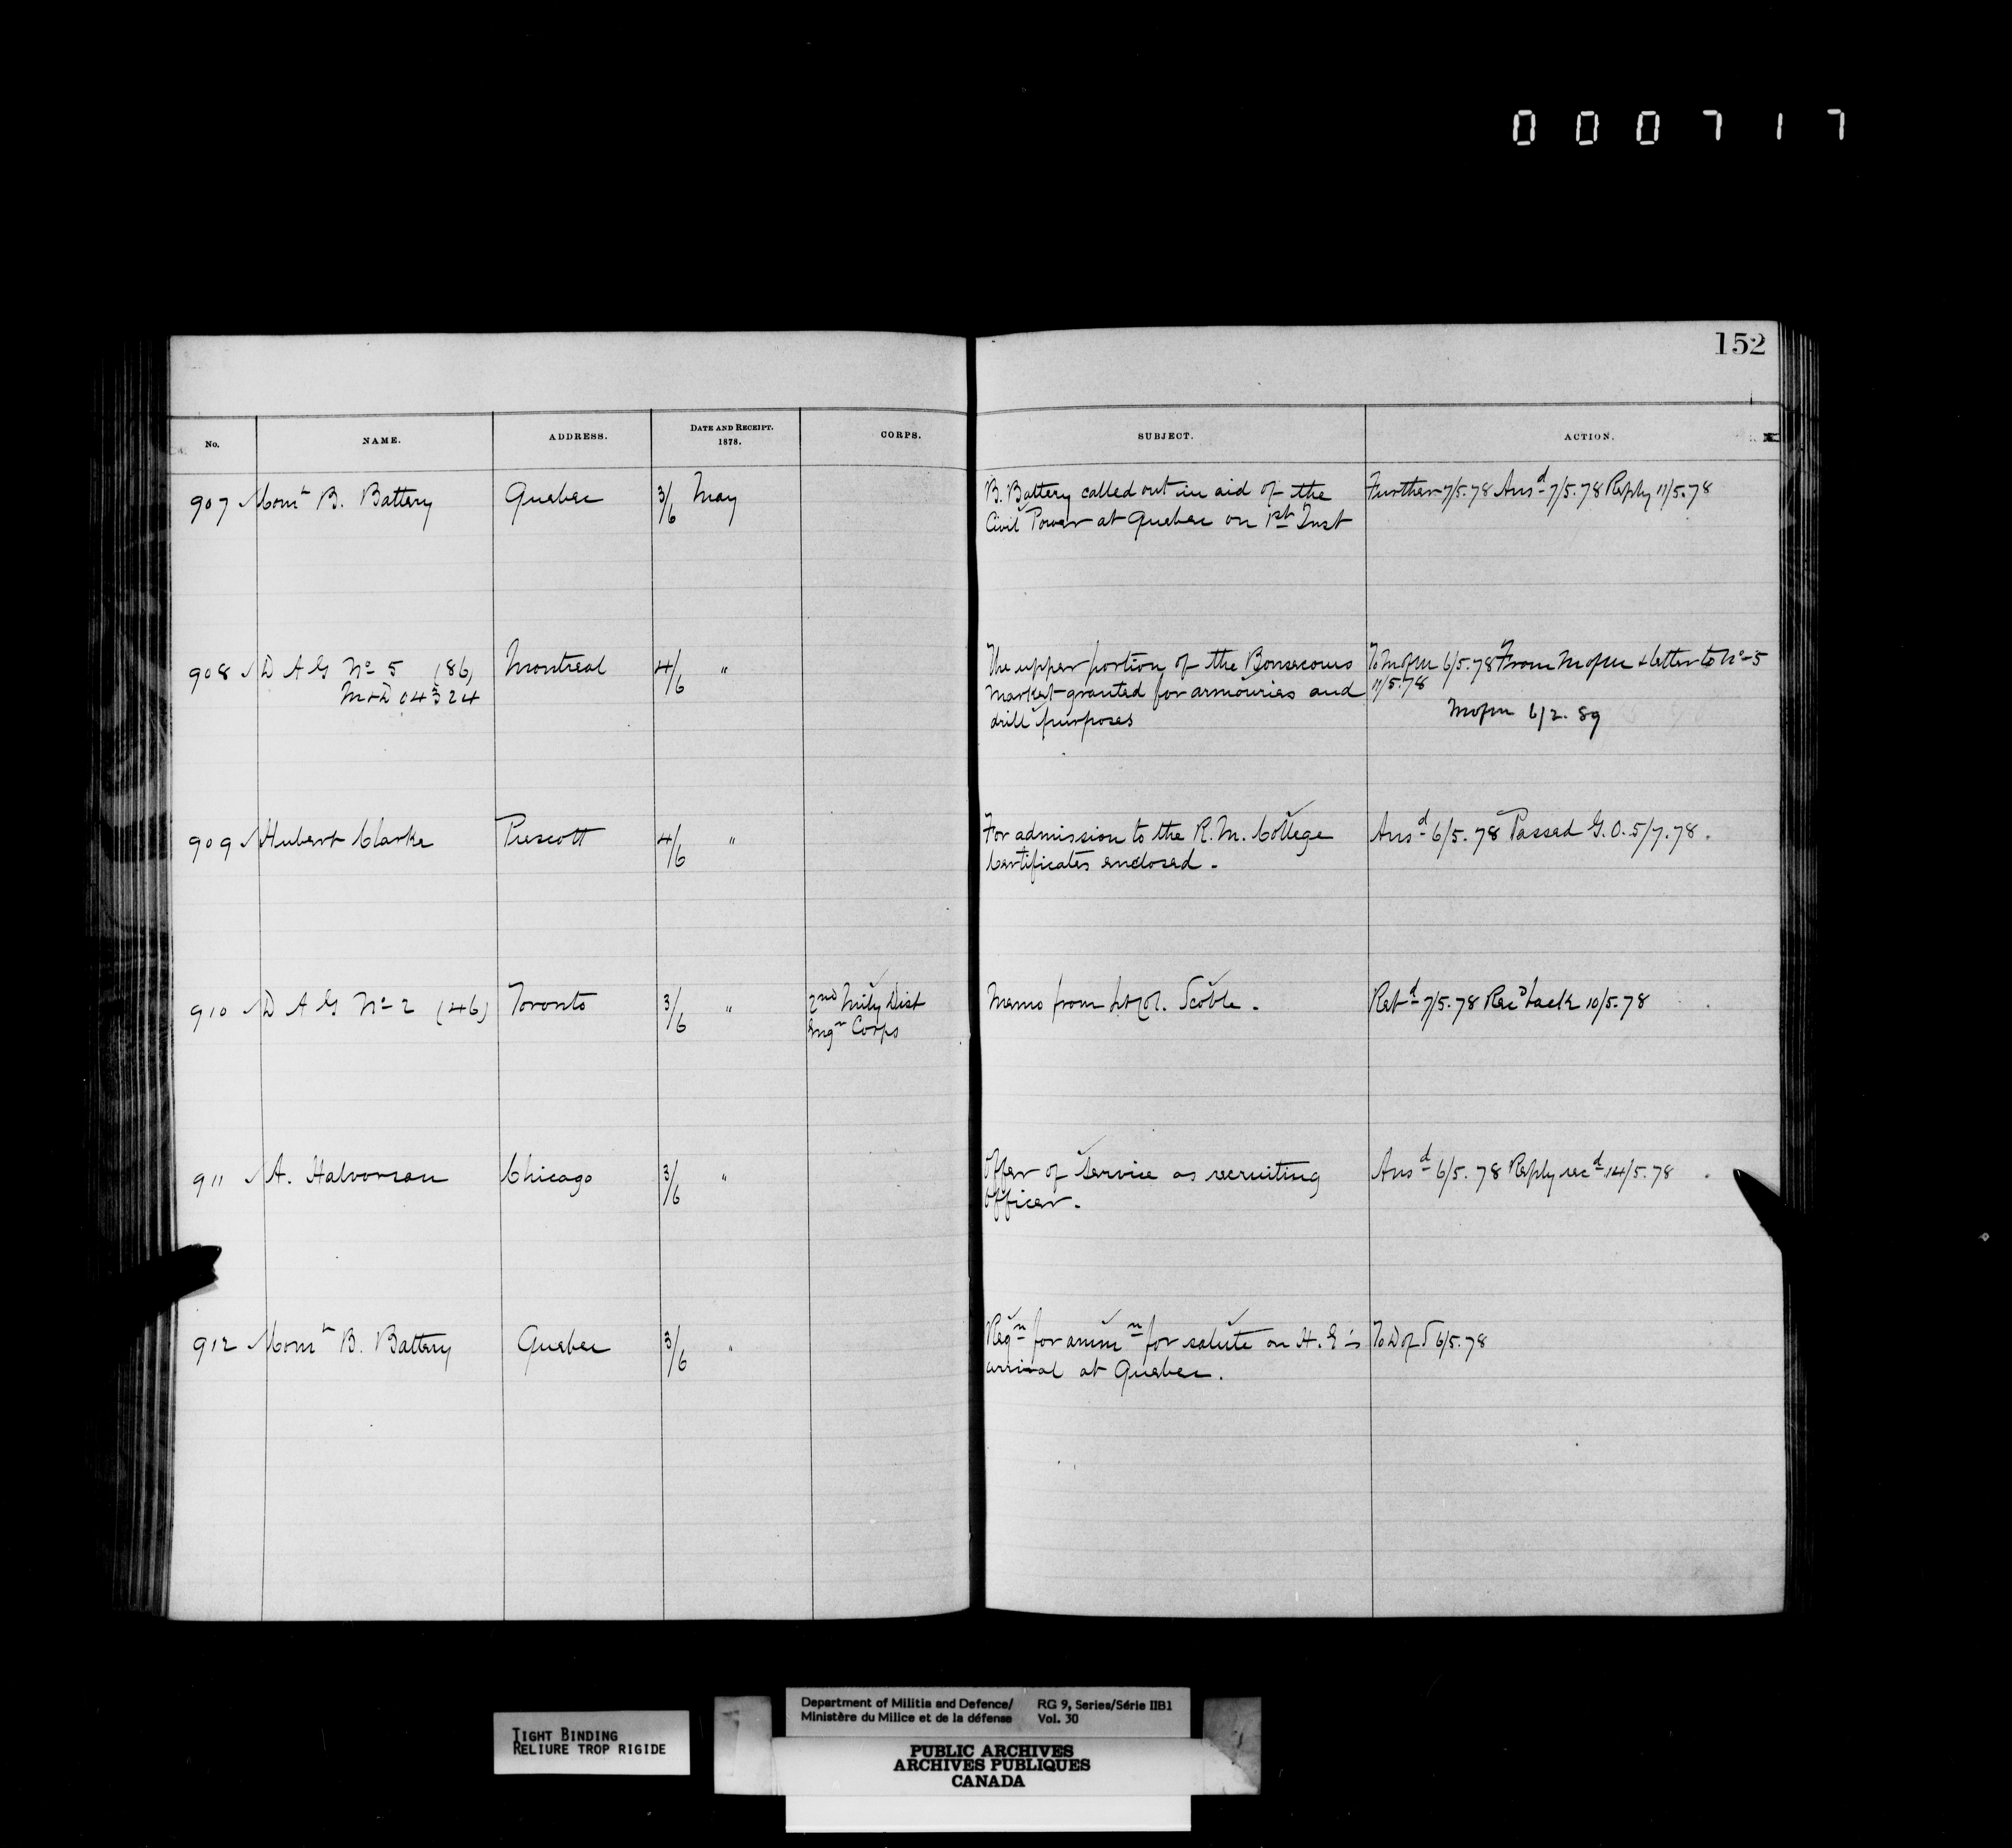 000717
152
No. NAME. ADDRESS. DATE AND RECEIPT. 1878. CORPS. SUBJECT. ACTION.
907 Comt B. Battery Quebec 3/6 May B. Battery called out in aid of the Further 7/5.78 Ansd 7/5.78 Reply 11/5.78
Civil Power at Quebec on 1st Inst
908 D A G No 5 (86) Montreal 4/6 " The upper portion of the Bonsecours To M of M 6/5.78 From M of M & letter to No 5
M & D 04324 Market granted for armouries and 11/5.78
drill purposes M of M 6/2.89
909 Hubert Clarke Prescott 4/6 " For admission to the R. M. College Ansd 6/5.78 Passed G.O. 5/7.78.
Certificates enclosed.
910 D A G No 2 (46) Toronto 3/6 " 2nd Mily Dist Memo from Lt Col. Scoble. Retd 7/5.78 Recd back 10/5.78
Engr Corps
911 A. Halvorsen Chicago 3/6 " Offer of service as recruiting Ansd 6/5.78 Reply recd 14/5.78
Officer.
912 Comt B. Battery Quebec 3/6 " Reqn for ammn for salute on H. E's To D of S 6/5.78
arrival at Quebec.
TIGHT BINDING
RELIURE TROP RIGIDE
Department of Militia and Defence/ RG 9, Series/Série IIB1
Ministère du Milice et de la défense Vol. 30
PUBLIC ARCHIVES
ARCHIVES PUBLIQUES
CANADA